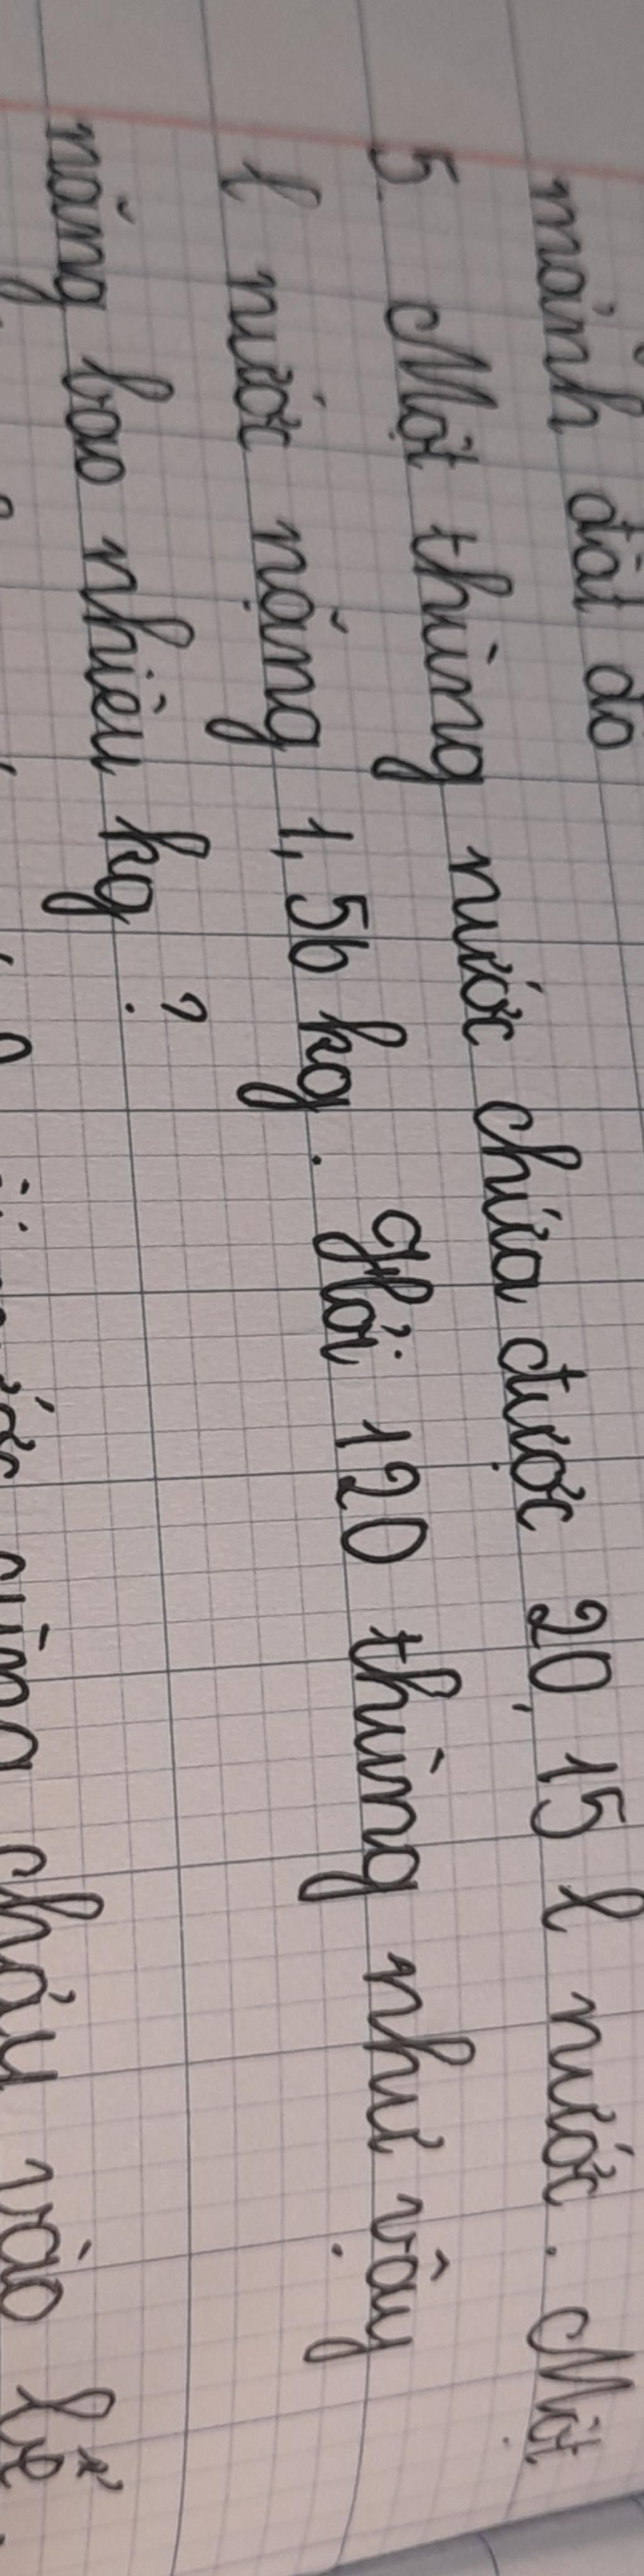 mảnh đất đó
5. Một thùng nước chứa được 20,15 l nước. Một
l nước nặng 1,56 kg. Hỏi 120 thùng như vậy
nặng bao nhiêu kg ?
chảy vào bể